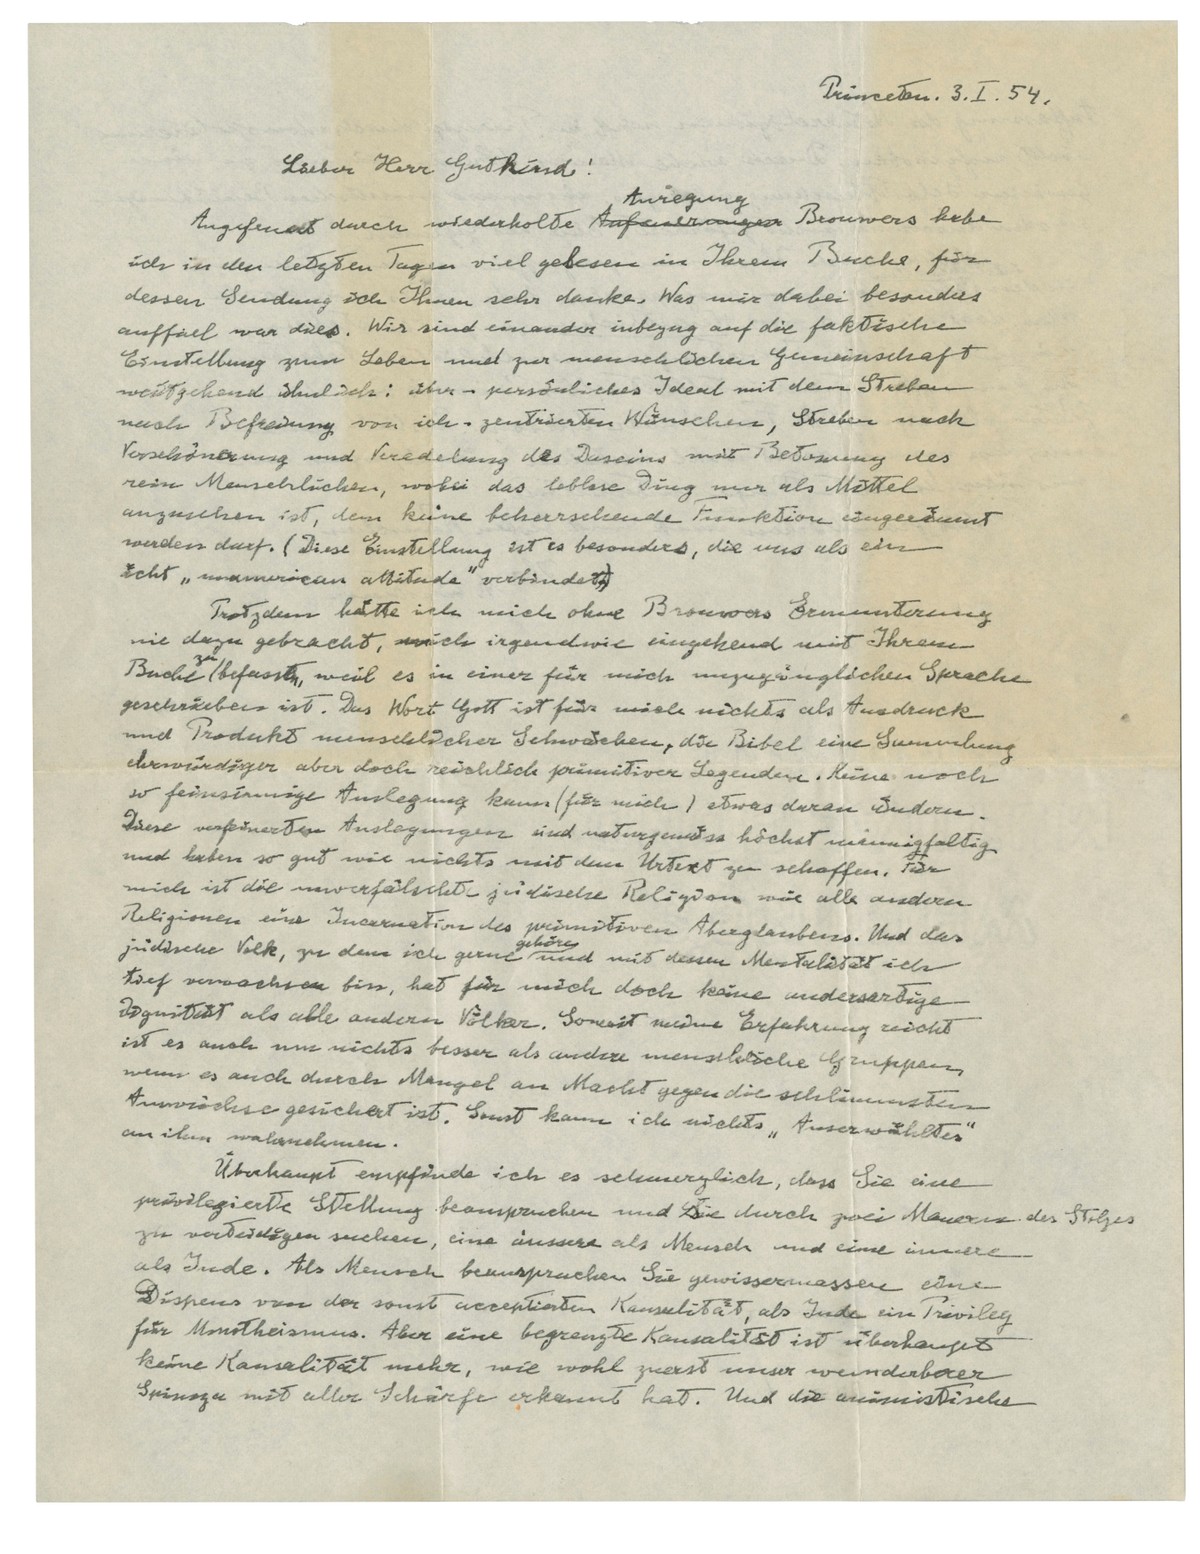 Princeton. 3. I. 54.
Lieber Herr Gutkind!
Anregung
Angefeuert durch wiederholte Aufmunterungen Brouwers habe
ich in den letzten Tagen viel gelesen in Ihrem Buche, für
dessen Sendung ich Ihnen sehr danke. Was mir dabei besonders
auffiel war dies. Wir sind einander inbezug auf die faktische
Einstellung zum Leben und zur menschlichen Gemeinschaft
weitgehend ähnlich: über-persönliches Ideal mit dem Streben
nach Befreiung von ich-zentrierten Wünschen, Streben nach
Verschönerung und Veredelung des Daseins mit Betonung des
rein Menschlichen, wobei das leblose Ding nur als Mittel
anzusehen ist, dem keine beherrschende Funktion eingeräumt
werden darf. (Diese Einstellung ist es besonders, die uns als ein
echt „unamerican attitude" verbindet.)
Trotzdem hätte ich mich ohne Brouwers Ermunterung
nie dazu gebracht, mich irgendwie eingehend mit Ihrem
Buche zu befassen, weil es in einer für mich unzugänglichen Sprache
geschrieben ist. Das Wort Gott ist für mich nichts als Ausdruck
und Produkt menschlicher Schwächen, die Bibel eine Sammlung
ehrwürdiger aber doch reichlich primitiver Legenden. Keine noch
so feinsinnige Auslegung kann (für mich) etwas daran ändern.
Diese verfeinerten Auslegungen sind naturgemäss höchst mannigfaltig
und haben so gut wie nichts mit dem Urtext zu schaffen. Für
mich ist die unverfälschte jüdische Religion wie alle andern
Religionen eine Incarnation des primitiven Aberglaubens. Und das
jüdische Volk, zu dem ich gerne gehöre und mit dessen Mentalität ich
tief verwachsen bin, hat für mich doch keine andersartige
Dignität als alle andern Völker. Soweit meine Erfahrung reicht
ist es auch um nichts besser als andere menschliche Gruppen,
wenn es auch durch Mangel an Macht gegen die schlimmsten
Auswüchse gesichert ist. Sonst kann ich nichts „Auserwähltes"
an ihm wahrnehmen.
Überhaupt empfinde ich es schmerzlich, dass Sie eine
privilegierte Stellung beanspruchen und sie durch zwei Mauern des Stolzes
zu verteidigen suchen, eine äussere als Mensch und eine innere
als Jude. Als Mensch beanspruchen Sie gewissermassen einen
Dispens von der sonst acceptierten Kausalität, als Jude ein Privileg
für Monotheismus. Aber eine begrenzte Kausalität ist überhaupt
keine Kausalität mehr, wie wohl zuerst unser wunderbarer
Spinoza mit aller Schärfe erkannt hat. Und die animistische